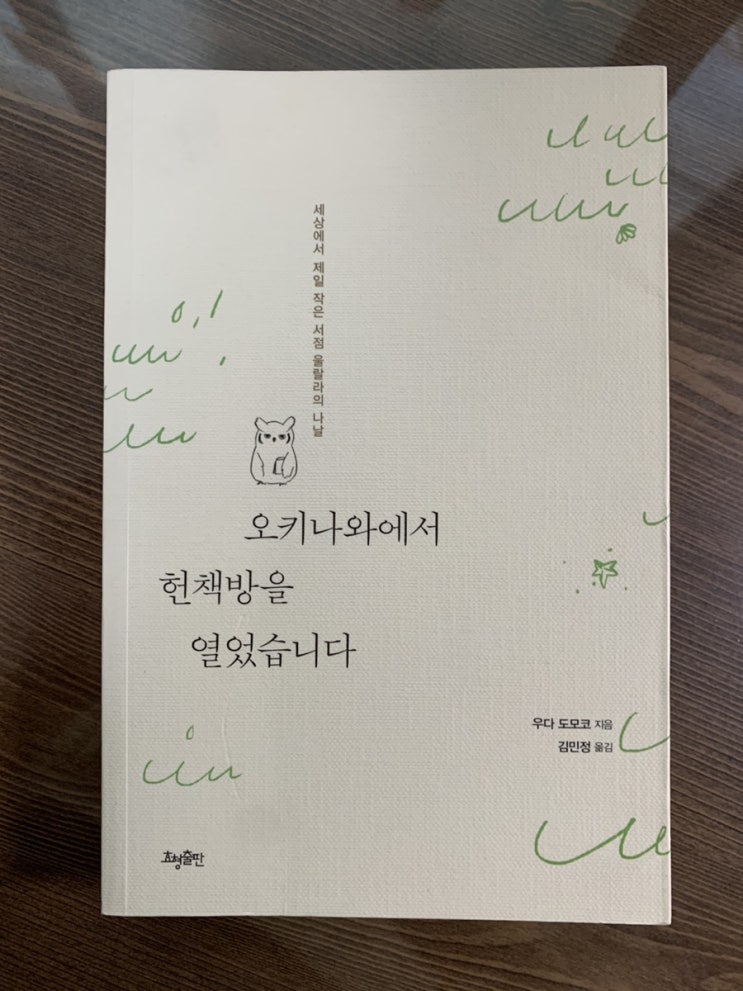 세상에서 제일 작은 서점 울랄라의 나날
오키나와에서
헌책방을
열었습니다
우다 도모코 지음
김민정 옮김
효형출판